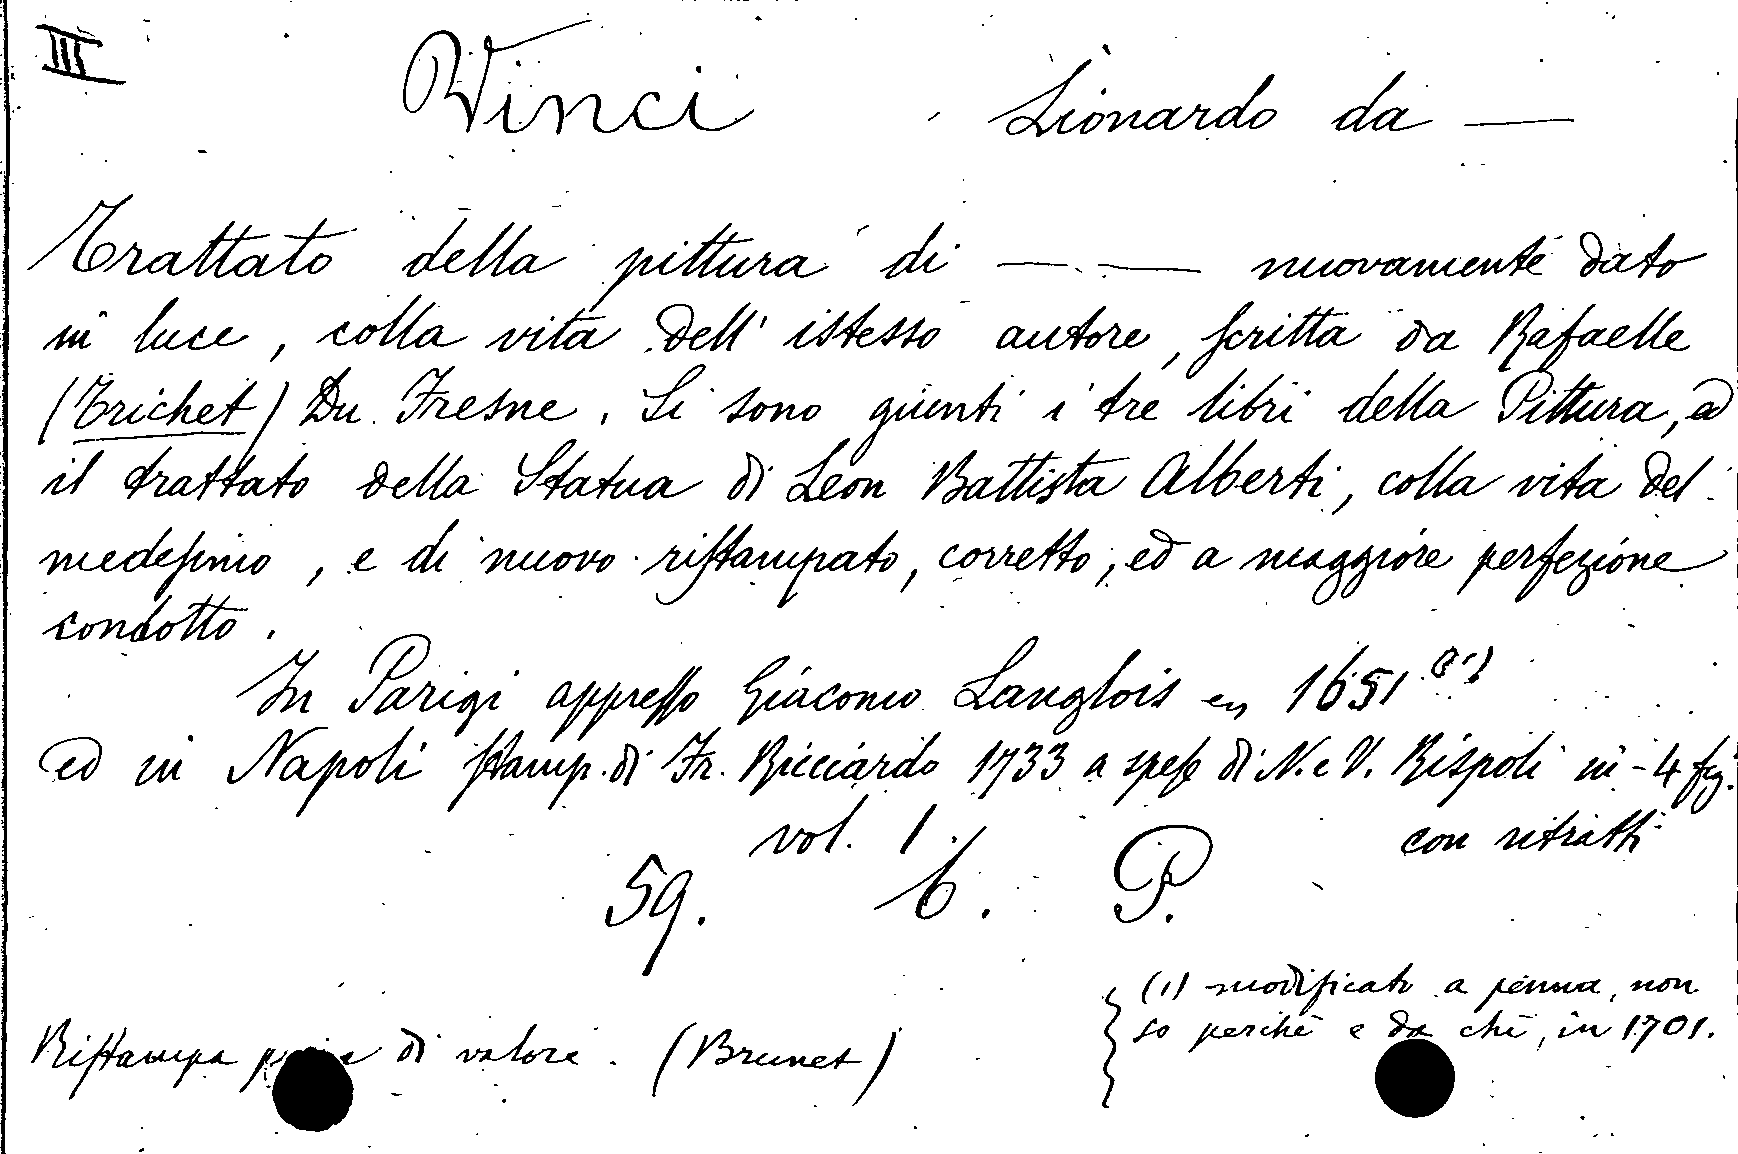 III
Vinci Lionardo da —
Trattato della pittura di — — nuovamente dato
in luce, colla vita dell' istesso autore, scritta da Rafaelle
(Trichet) Du Fresne. Si sono giunti i tre libri della Pittura, ed
il trattato della Statua di Leon Battista Alberti, colla vita del
medesimo, e di nuovo ristampato, corretto, ed a maggiore perfezione
condotto.
In Parigi appresso Giacomo Langlois 1651 (1)
ed in Napoli stamp. di Fr. Ricciardo 1733 a spese di N. e V. Rispoli in-4 fig.
vol. 1. con ritratti
59. b. P.
(1) modificato a penna, non
so perchè e da chi, in 1701.
Ristampa di valore. (Brunet)